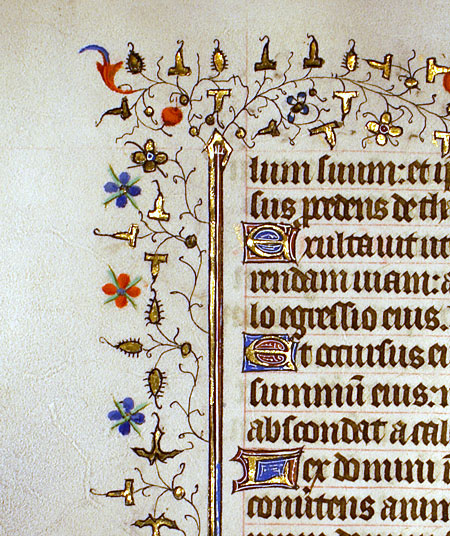 lum suum: et ip
sus ꝓcedens de th
Exultauit ut
rendam uiam: a
lo egressio eius.
Et occursus ei
summū eius: n
abscondat a cal
Lex domini ī
conūtens anim